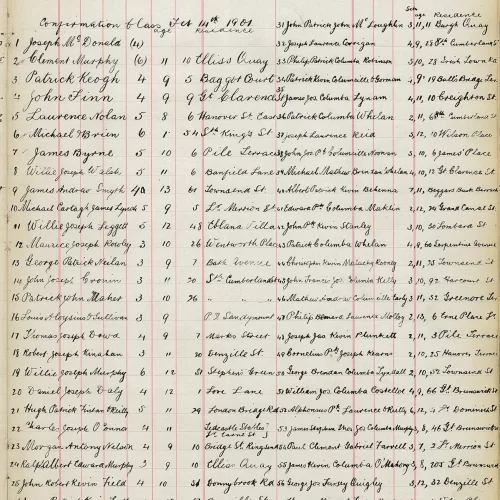 Confirmation Class Feb 14th 1901
age Residence
Sec age Residence
1 Joseph McDonald (4)
2 Clement Murphy (6) 11 10 Ulliss Quay
3 Patrick Keogh 4 9 5 Baggot Court
4 John Finn 4 9 9 Gt Clarence St
5 Laurence Nolan 5 8 6 Hanover St East
6 Michael O'Brien 6 1 54 Sth King's St
7 James Byrne 5 10 6 Pile Terrace
8 Willie Joseph Walsh 5 11 6 Banfield Lane
9 James Andrew Smyth 40 13 61 Townsend St
10 Michael Carlagh James Lynch 5 9 5 Lr Merrion St
11 Willie Joseph Leggett 5 12 48 Eblana Villas
12 Maurice Joseph Rowley 3 10 26 Wentworth Place
13 George Patrick Neilan 3 9 7 Bath Avenue
14 John Joseph Cronin 3 11 20 St Cumberland St
15 Patrick John Maher 3 10 26 " " "
16 Louis Aloysius O'Sullivan 3 9 P R Sandymount
17 Thomas Joseph Dowd 4 9 7 Marks Street
18 Robert Joseph Kinahan 3 11 30 Denzille St
19 Willie Joseph Murphy 6 12 51 Stephens Green
20 Daniel Joseph Daly 4 12 1 Love Lane
21 Hugh Patrick O'Reilly 5 11 29 London Bridge Rd
22 Charles Joseph O'Connor 4 11
23 Morgan Antony Nelson 4 9 10 Bridge St Ringsend
24 Ralph Albert Edward Murphy 3 9 10 Ulliss Quay
25 John Robert Kevin Field 4 10 31 Donnybrook Rd
31 John Patrick John McLoughlin 3, 11, 11 Burgh Quay
32 Joseph Laurence Corrigan 4, 9, 28 Sth Cumberland St
33 Philip Patrick Columba Robinson 3, 10, 23 Irish Town Rd
34 Patrick Kevin Columcille O'Gorman 4, 9, 19 Balls Bridge Ter
35 James Jos. Columba Lynam 4, 11, 10 Creighton St
36 Patrick Columba Whelan 2, 11, 68 Sth Cumberland St
37 Joseph Laurence Reid 3, 12, 10 Wilson Place
38 John Jos. Pk Columcille Noonan 3, 10, 6 James' Place
Michael Mathew Brendan Whelan 4, 10, 12 Gt Clarence St
Albert Patrick Kevin Behenna 7, 11, Beggars Bush Barrack
Edward Pk Columba Macklin 2, 12, 20 Grand Canal St
John Pk Kevin Stanley 3, 10, 30 Lombard St
Patrick Columba Whelan 4, 9, 60 Serpentine Avenue
44 Christopher Kevin Malachy Rooney 2, 11, 75 Townsend St
John Francis Jos. Columba Kelly 3, 10, 92 Gardiner St
Mathew Columcille Early 3, 11, 52 Grenore Ter
47 Philip Bernard Laurence Molloy 2, 13, 6 Erne Place
48 Joseph Jas Kevin Plunkett 2, 11, 3 Pile Terrace
49 Cornelius Pk Joseph Kearns 2, 10, 25 Hanover
50 George Brendan Columba Tyndall 2, 10,
51 William Jos. Columba Costello 4, 9, 66 Gt Brunswick St
52 Alphonsus Pk Laurence O'Kelly 4, 12, 4 St Dominick St
53 James Stephen Jos Columba Murphy 3, 8, 46 Gt Brunswick St
54 Paul Clement Gabriel Farrell 3, 7, 2 Lr Merrion St
55 James Kevin Columba O'Mahony 3, 8, 205 Gt Brunswick
56 George Jos Fursey Quigley 3, 12, 32 Denzille St